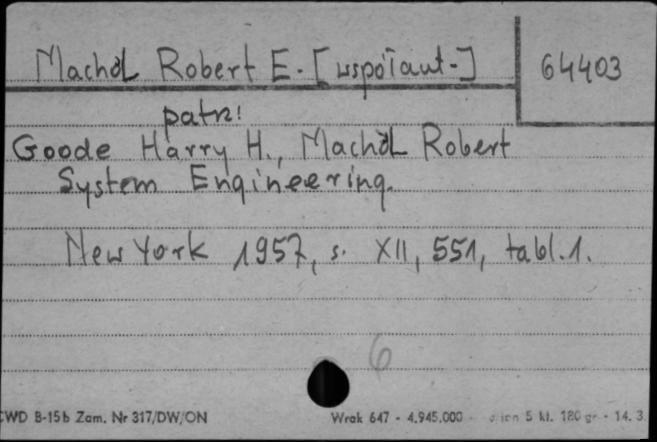 Machol Robert E. [współaut.]
64403
patrz:
Goode Harry H., Machol Robert
System Engineering.
New York 1957, s. XII, 551, tabl. 1.
6
CWD B-15b Zam. Nr 317/DW/ON
Wrak 647 - 4.945.000 - 5 kl. 180 gr - 14. 3